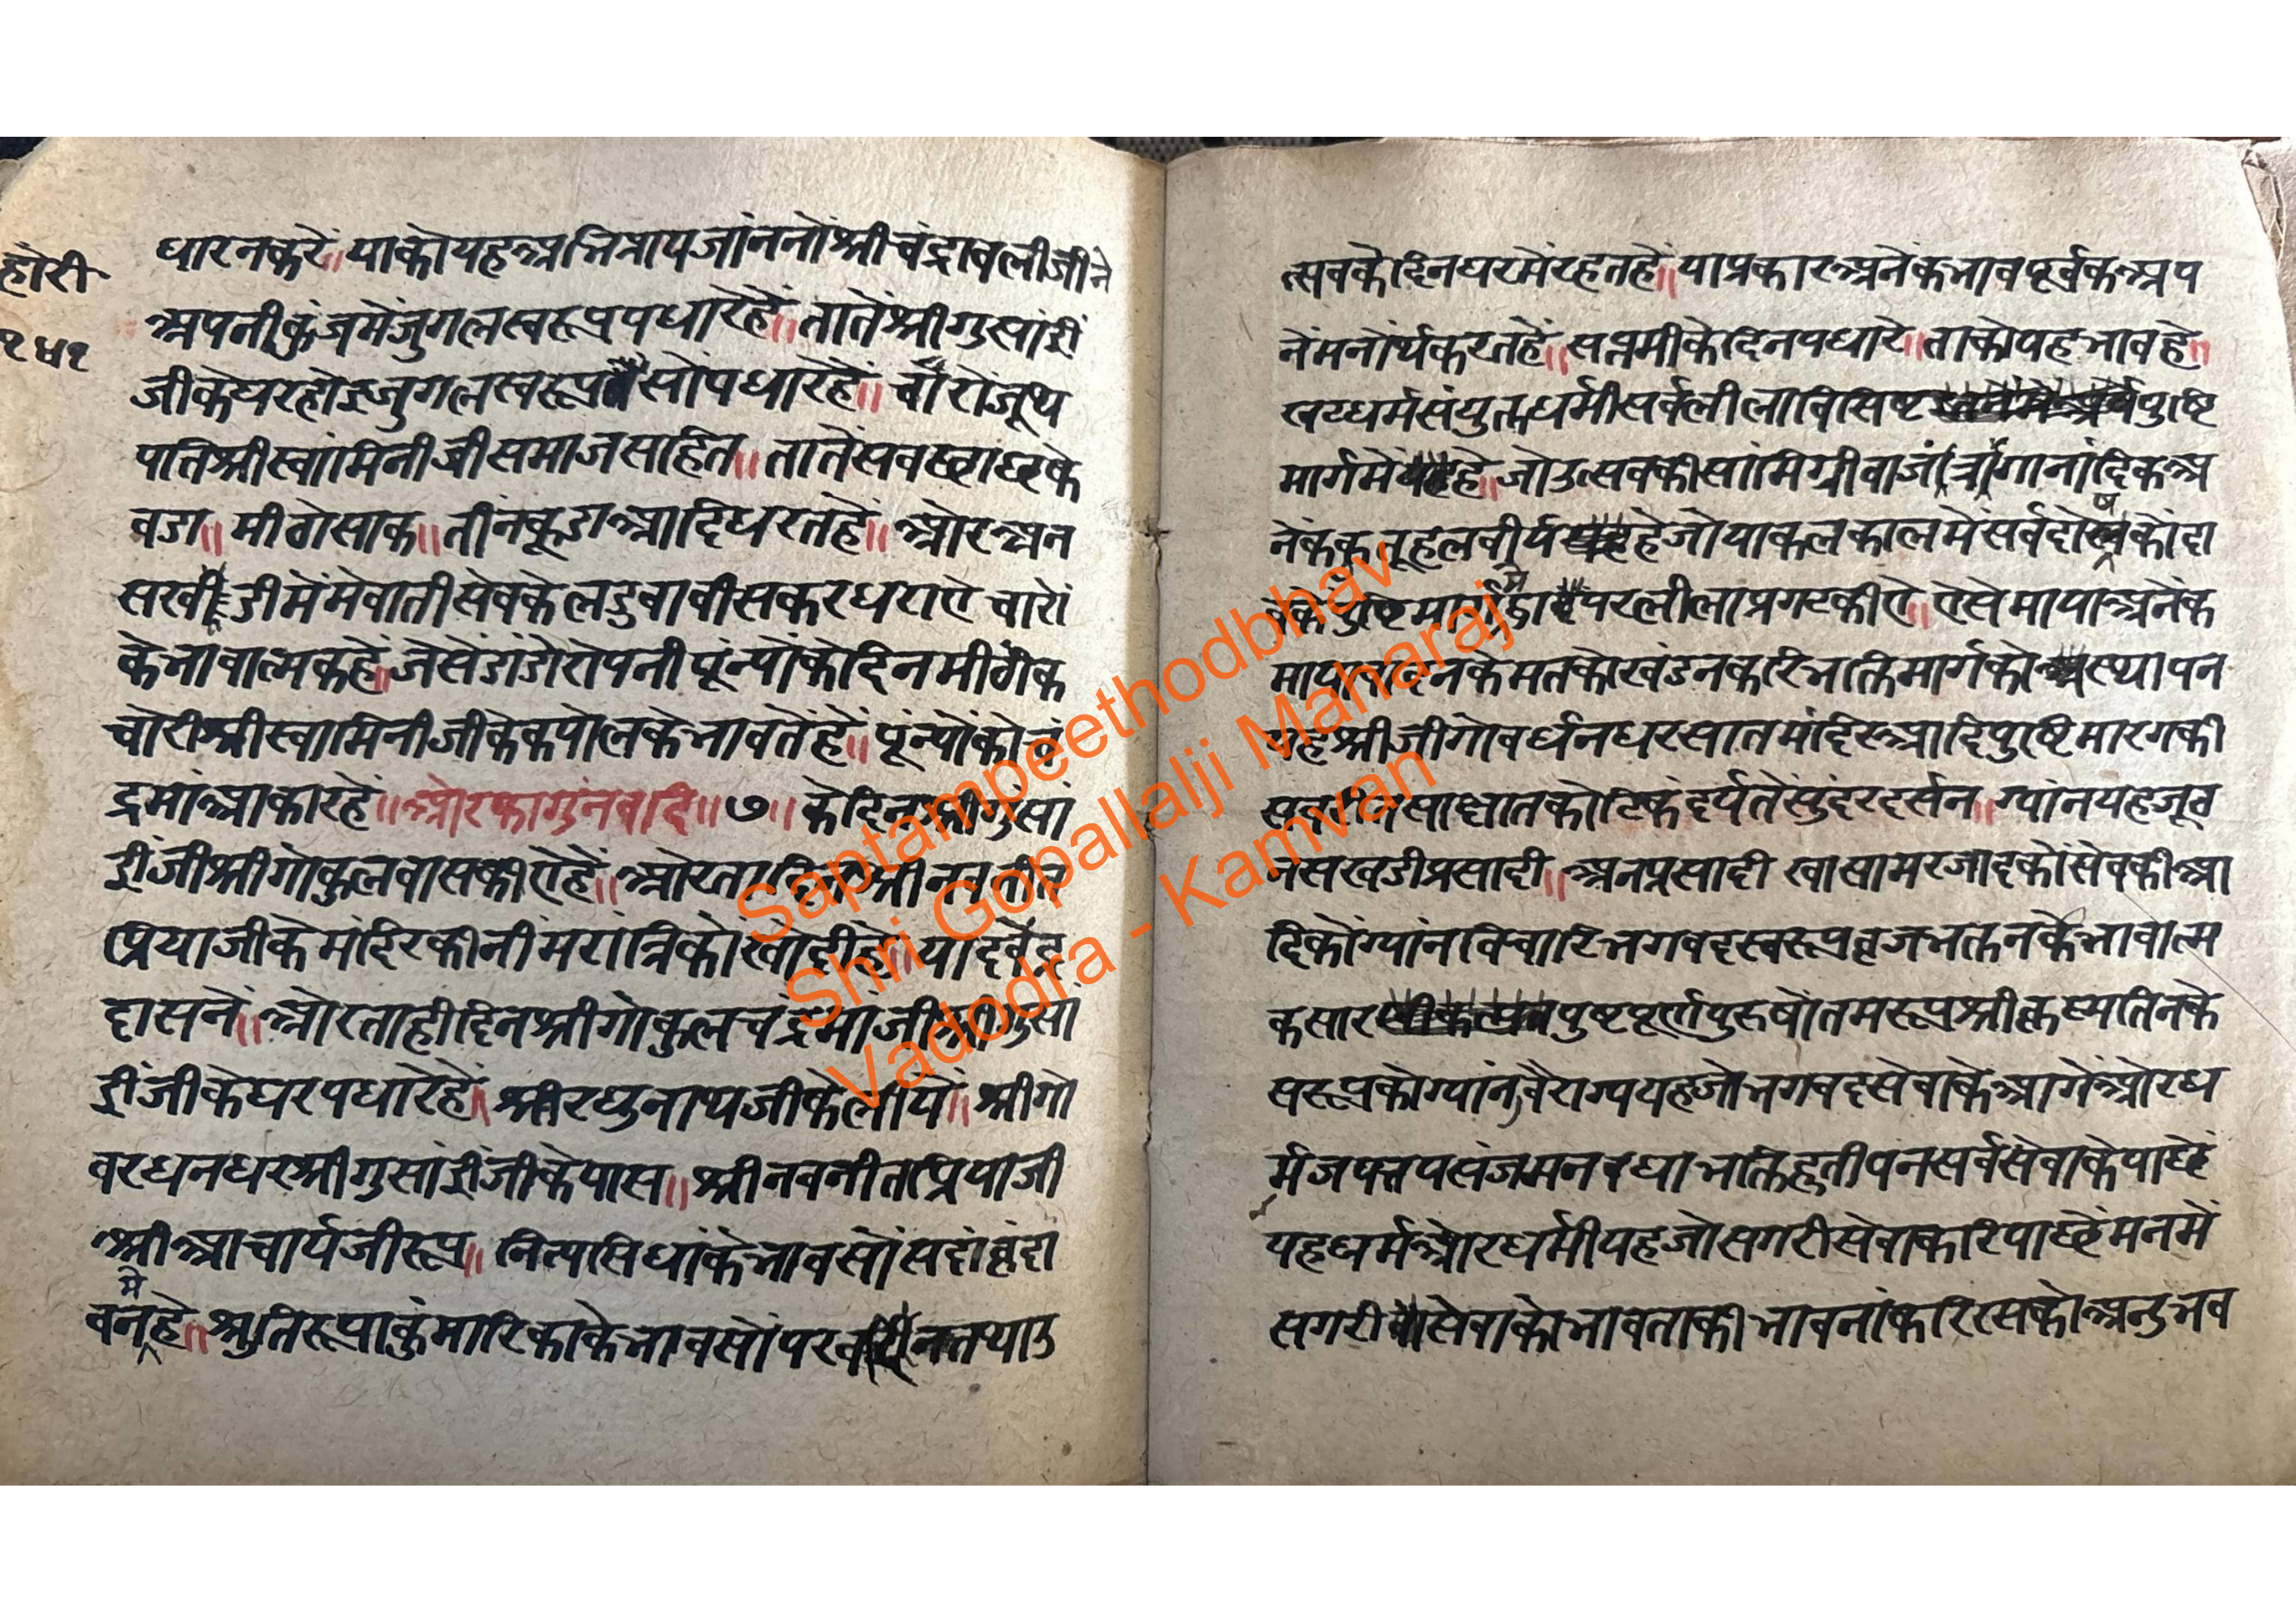 होरी
१५१
धारनकरें॥ याकोयहअभिप्रायजांननोंश्रीचंद्रावलीजीने
अपनीकुंजमेंजुगलस्वरूपपधारेहें॥ तातेंश्रीगुसांईं
जीकेघरहोइजुगलस्वरूप सोंपधारेहें॥ चारोंजूथ
पतिश्रीस्वामिनीजीसमाजसहित॥ तातेंसबखटाछाछके
वडा॥ मीठोसाक॥ तीनकूडाआदिधरतहें॥ ओरअन
सखडीमेंमेवातीसेवकेलडुवावीसकरधराऐ चारों
केभावात्मकहें॥ जेसेंडांडोरोपनीपूंन्योंकोदिनमीठीक
चोरीश्रीस्वामिनीजीकेकपोलकेभावतेंहें॥ पूंन्योंकोचं
द्रमांआकारहें॥ ओरफागुंनवदि॥ ७॥ केदिनश्रीगुसां
ईंजीश्रीगोकुलवासकीऐहें॥ ओरतादिनश्रीनवनीत
प्रियाजीकेमंदिरकीनीमरात्रिकोंखोदीहे॥ यादवेंद्र
दासनें॥ ओरताहीदिनश्रीगोकुलचंद्रमांजीश्रीगुसां
ईंजीकेघरपधारेहें॥ श्रीरघुनाथजीकेलीयें॥ श्रीगो
वरधनधरश्रीगुसांईंजीकेपास॥ श्रीनवनीतप्रियाजी
श्रीआचार्यजीरूप॥ नित्यसिधांकेभावसोंसदांवृंदा
वनमेंहे॥ श्रुतिरूपाकुंमारिकाकेभावसों तथाउ
त्सवकेदिनघरमेंरहतहें॥ याप्रकारअनेंकभावपूर्वकअप
नेंमनोर्थकरतहें॥ सप्तमीकेदिनपधारे॥ ताकोयहभावहे॥
खटधर्मसंयुक्तधर्मीसर्वलीलाविसिष्ट पुष्टि
मार्गमें हे॥ जोउत्सवकीसांमिग्रीवाजंत्रगानांदिकअ
नेंककतूहलवीर्य हेजोयाकलकालमेंसर्वदोषनकोंदा
पुष्टिमार्गमें परलीलाप्रगटकीऐ॥ ऐसेमायाअनेंक
मायावादिनकेमतकोखंडनकरिभक्तिमार्गको स्थापन
यहश्रीजीगोवर्धनधरसातमंदिरआदिपुष्टिमारगकी
साक्षातकोटिकंदर्पतेंसुंदरदर्सन॥ ग्यांनयहजूठ
नसखडीप्रसादी॥ अनप्रसादी खासामरजादकोंसेवकीआ
दिकोंग्यांनविचारिभगवदस्वरूपव्रजभक्तनकेभावात्म
कसार पुष्टपूर्णपुरुषोतमरूपश्रीकृष्णतिनके
स्वरूपकोग्यांनवैराग्ययहजोभगवदसेवाकेआगेंओरध
र्मजपतपसंजमनवधाभक्तिहुतीपनसर्वसेवाकेपाछें
यहधर्मओरधर्मीयहजोसगरीसेवाकरिपाछेंमनमें
सगरी सेवाकोभावताकीभावनांकरिरसकोअनुभव
Saptampeethodbhav
Shri Gopallalji Maharaj
Vadodra - Kamvan